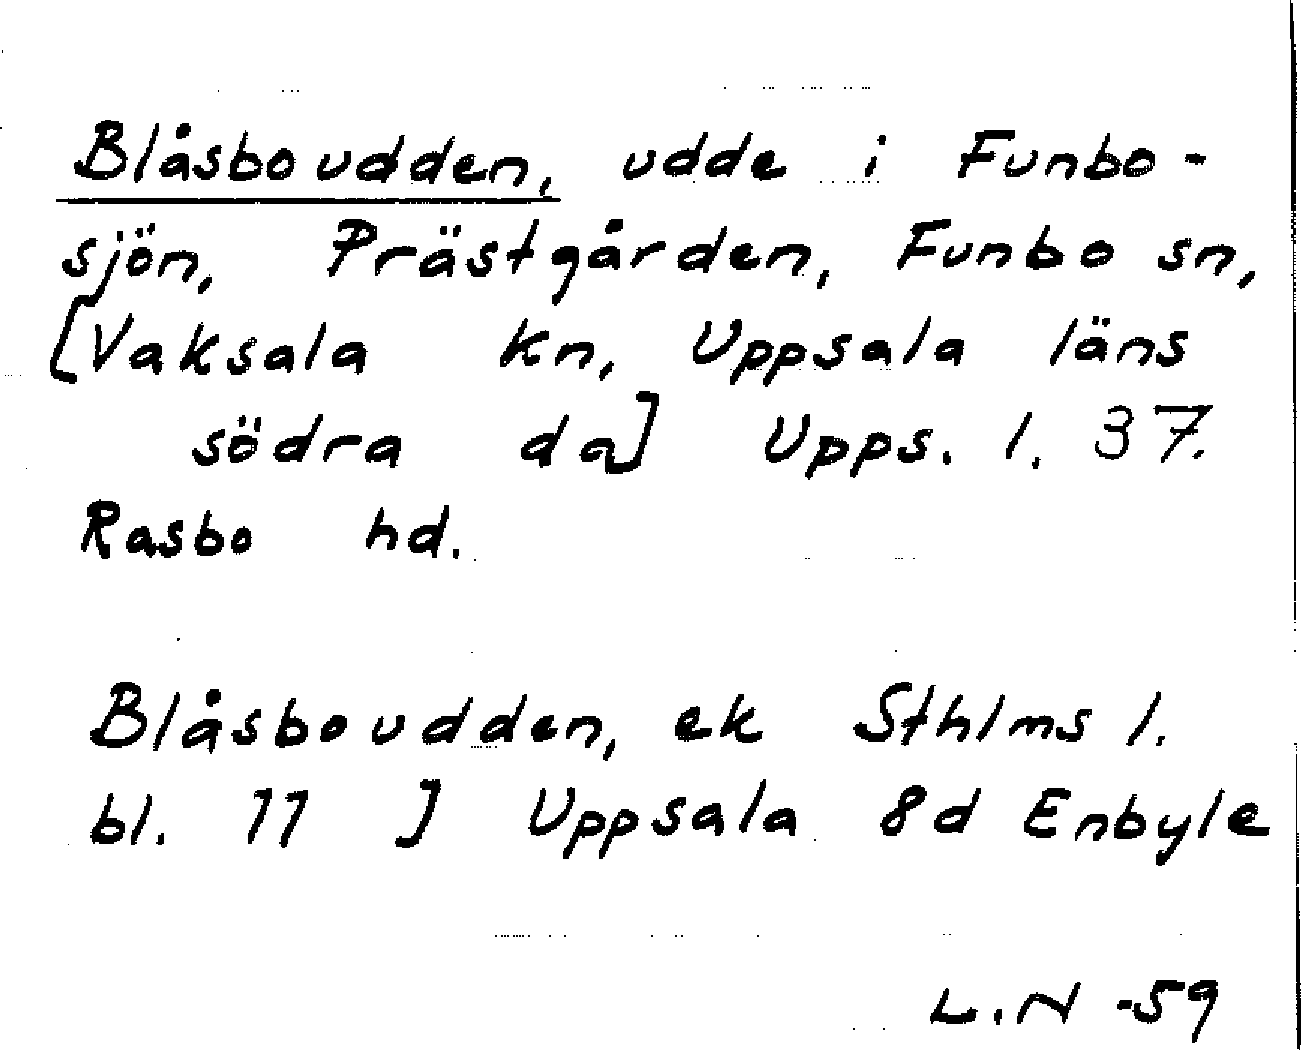 Blåsboudden, udde i Funbo-
sjön, Prästgården, Funbo sn,
[Vaksala kn, Uppsala läns
södra da] Upps. l. 37.
Rasbo hd.
Blåsboudden, ek Sthlms l.
bl. 11 J Uppsala 8d Enbyle
L.N -59